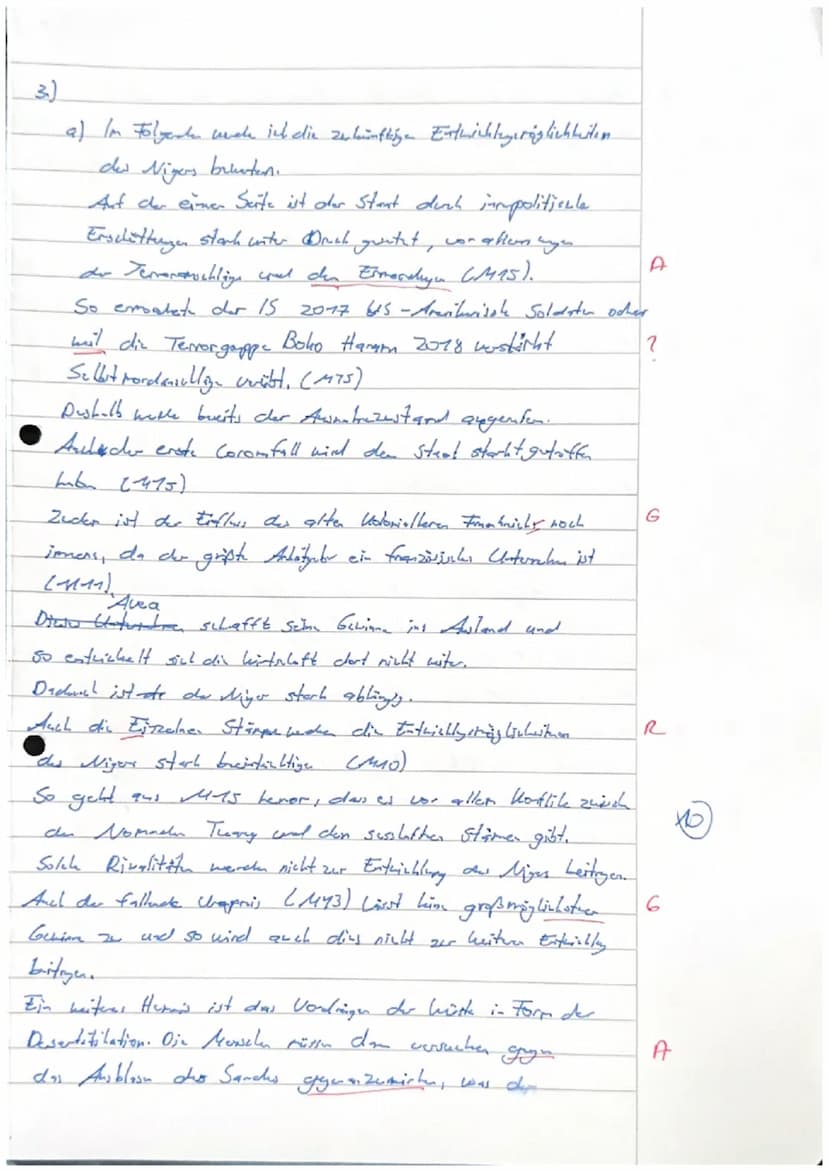 3)
a) Im Folgenden werde ich die zukünftigen Entwicklungsmöglichkeiten
des Nigers bewerten.
Auf der einen Seite ist der Staat durch innpolitische
Erschütterungen stark unter Druck gesetzt, vor allem wegen
der Terroranschläge und den (M15).
A
So ermordete der IS 2017 US-Amerikanische Soldaten oder
weil die Terrorgruppe Boko Haram 2018 verstärkt
?
Selbstmordanschläge verübt. (M15)
Deshalb wurde bereits der Ausnahmezustand ausgerufen.
Auch der erste Coronafall wird den Staat stark getroffen
haben (M15)
Zudem ist der Einfluss des alten Kolonialherren Frankreichs noch
G
immens, da der größte Arbeitgeber ein französisches Unternehmen ist
(M11).
Avea
schafft seine Gewinne ins Ausland und
so entwickelt sich die Wirtschaft dort nicht weiter.
Dadurch ist der Niger stark abhängig.
Auch die Einzelnen Stämme werden die Entwicklungsmöglichkeiten
R
des Nigers stark beeinträchtigen (M10)
So geht aus M15 hervor, dass es vor allem Konflikte zwischen
den Nomaden Tuareg und den sesshaften Stämmen gibt.
10
Solche Rivalitäten werden nicht zur Entwicklung des Nigers beitragen.
Auch der fallende Uranpreis (M13) lässt keine großmöglichsten
G
Gewinne zu und so wird auch dies nicht zur weiteren Entwicklung
beitragen.
Ein weiteres Hemmnis ist das Vordringen der Wüste in Form der
Desertifikation. Die Menschen müssen dann versuchen gegen
A
das Ausblasen des Sandes gegenanzuwirken, was den